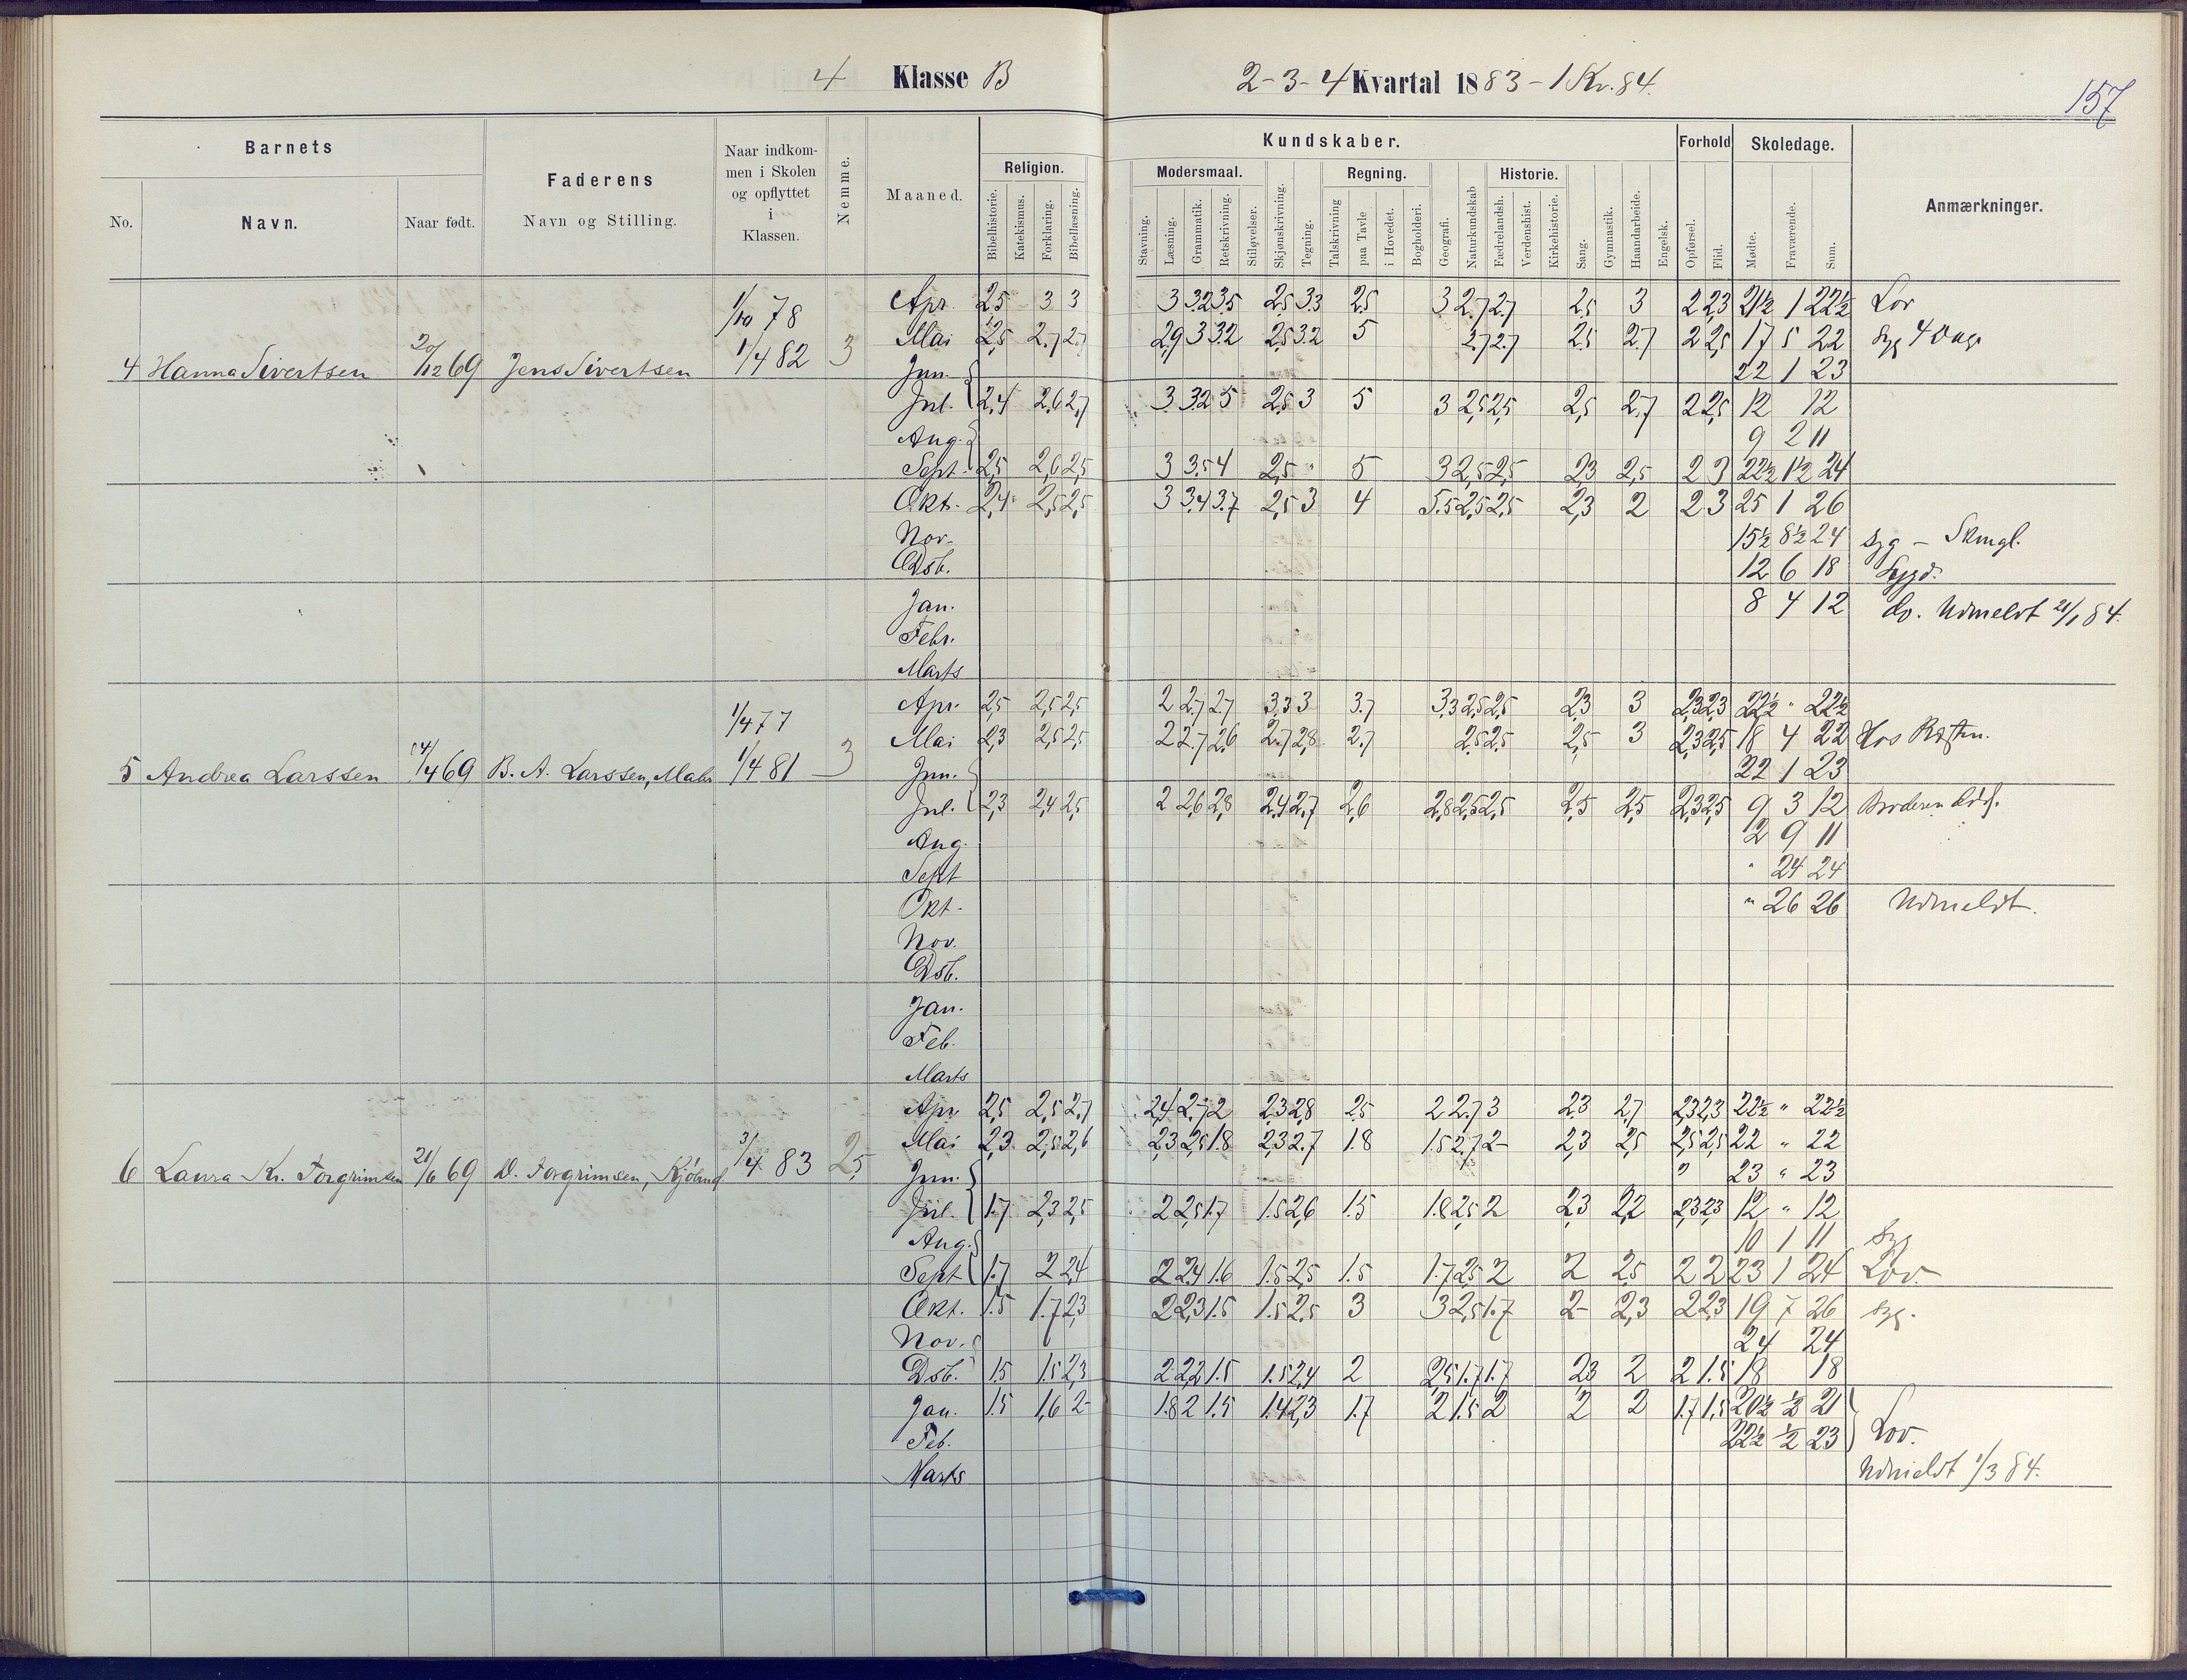 4 Klasse B
2-3-4 Kvartal 1883 - 1 Kv. 84.
157
Barnets
No.
Navn.
Naar født.
Faderens
Navn og Stilling.
Naar indkom-
men i Skolen
og opflyttet
i
Klassen.
Nemme.
Maaned.
Religion.
Bibelhistorie.
Katekismus.
Forklaring.
Bibellæsning.
Kundskaber.
Modersmaal.
Stavning.
Læsning.
Grammatik.
Retskrivning.
Stiløvelser.
Skjønskrivning.
Tegning.
Regning.
Talskrivning
paa Tavle
i Hovedet.
Bogholderi.
Geografi.
Naturkundskab
Historie.
Fædrelandsh.
Verdenshist.
Kirkehistorie.
Sang.
Gymnastik.
Haandarbeide.
Engelsk.
Forhold
Opførsel.
Flid.
Skoledage.
Mødte.
Fraværende.
Sum.
Anmærkninger.
4 Hanna Sivertsen 20/12 69 Jens Sivertsen 1/10 78 1/4 82 3
Apr. 2,5 3 3 3 3.2 3.5 2,5 3.3 2.5 3 2.7 2.7 2.5 3 2 2,3 21½ 1 22½ Lov
Mai 2,5 2.7 2.7 2,9 3 3.2 2,5 3.2 5 2.7 2.7 2.5 2.7 2 2,5 17 5 22 Syg 4 Dage
Jun. 22 1 23
Jul. 2,4 2,6 2,7 3 3.2 5 2,5 3 5 3 2,5 2,5 2,5 2,7 2 2,5 12 12
Aug. 9 2 11
Sept. 2,5 2,6 2,5 3 3.5 4 2,5 " 5 3 2,5 2,5 2,3 2,5 2 3 22½ 1½ 24
Okt. 2,4 2,5 2,5 3 3,4 3.7 2,5 3 4 5.5 2,5 2,5 2,3 2 2 3 25 1 26
Nov. 15½ 8½ 24 Syg -
Dsb. 12 6 18 Sygd.
Jan. 8 4 12 do. Udmeldt 21/1 84.
Febr.
Marts
5 Andrea Larssen 14/4 69 B. A. Larssen, Maler 1/4 77 1/4 81 3
Apr. 2,5 2,5 2,5 2 2.7 2.7 3.3 3 3.7 3,3 2,5 2,5 2,3 3 2,3 2,3 22½ " 22½
Mai 2,3 2,5 2,5 2 2.7 2,6 2.7 2,8 2.7 2,5 2,5 2,5 3 2,3 2,5 18 4 22 Hos Præsten.
Jun. 22 1 23
Jul. 2,3 2,4 2,5 2 2,6 2,8 2,4 2,7 2,6 2,8 2,5 2,5 2,5 2,5 2,3 2,5 9 3 12 Broderen
Aug. 2 9 11
Sept " 24 24
Okt. " 26 26 Udmeldt.
Nov.
Dsb.
Jan.
Feb.
Marts
6 Laura Kr. Torgrimsen 21/6 69 D. Torgrimsen, Kjøbmd. 3/4 83 2,5
Apr 2,5 2,5 2,7 2,4 2.7 2 2,3 2,8 2.5 2 2.7 3 2.3 2,7 2,3 2,3 22½ " 22½
Mai 2,3 2,5 2,6 2,3 2,5 1.8 2,3 2.7 1.8 1.5 2,7 2- 2,3 2,5 2,5 2,5 22 " 22
Jun. " 23 " 23
Jul. 1.7 2,3 2,5 2 2,5 1.7 1.5 2,6 1.5 1.8 2,5 2 2,3 2,2 2,3 2,3 12 " 12
Aug. 10 1 11 Syg
Sept 1.7 2 2,4 2 2,4 1.6 1.5 2,5 1.5 1.7 2,5 2 2 2,5 2 2 23 1 24 Lov.
Okt. 1.5 1.7 2,3 2 2,3 1.5 1.5 2,5 3 3 2,5 1.7 2- 2,3 2 2,3 19 7 26 Syg.
Nov. 24 24
Dsb. 1.5 1.5 2,3 2 2,2 1.5 1.5 2,4 2 2,5 1.7 1.7 2,3 2 2 1.5 18 18
Jan. 1.5 1,6 2- 1.8 2 1.5 1.4 2,3 1.7 2 1.5 2 2 2 1.7 1,5 20½ ½ 21
Feb. 22½ ½ 23 Lov.
Marts Udmeldt 1/3 84.